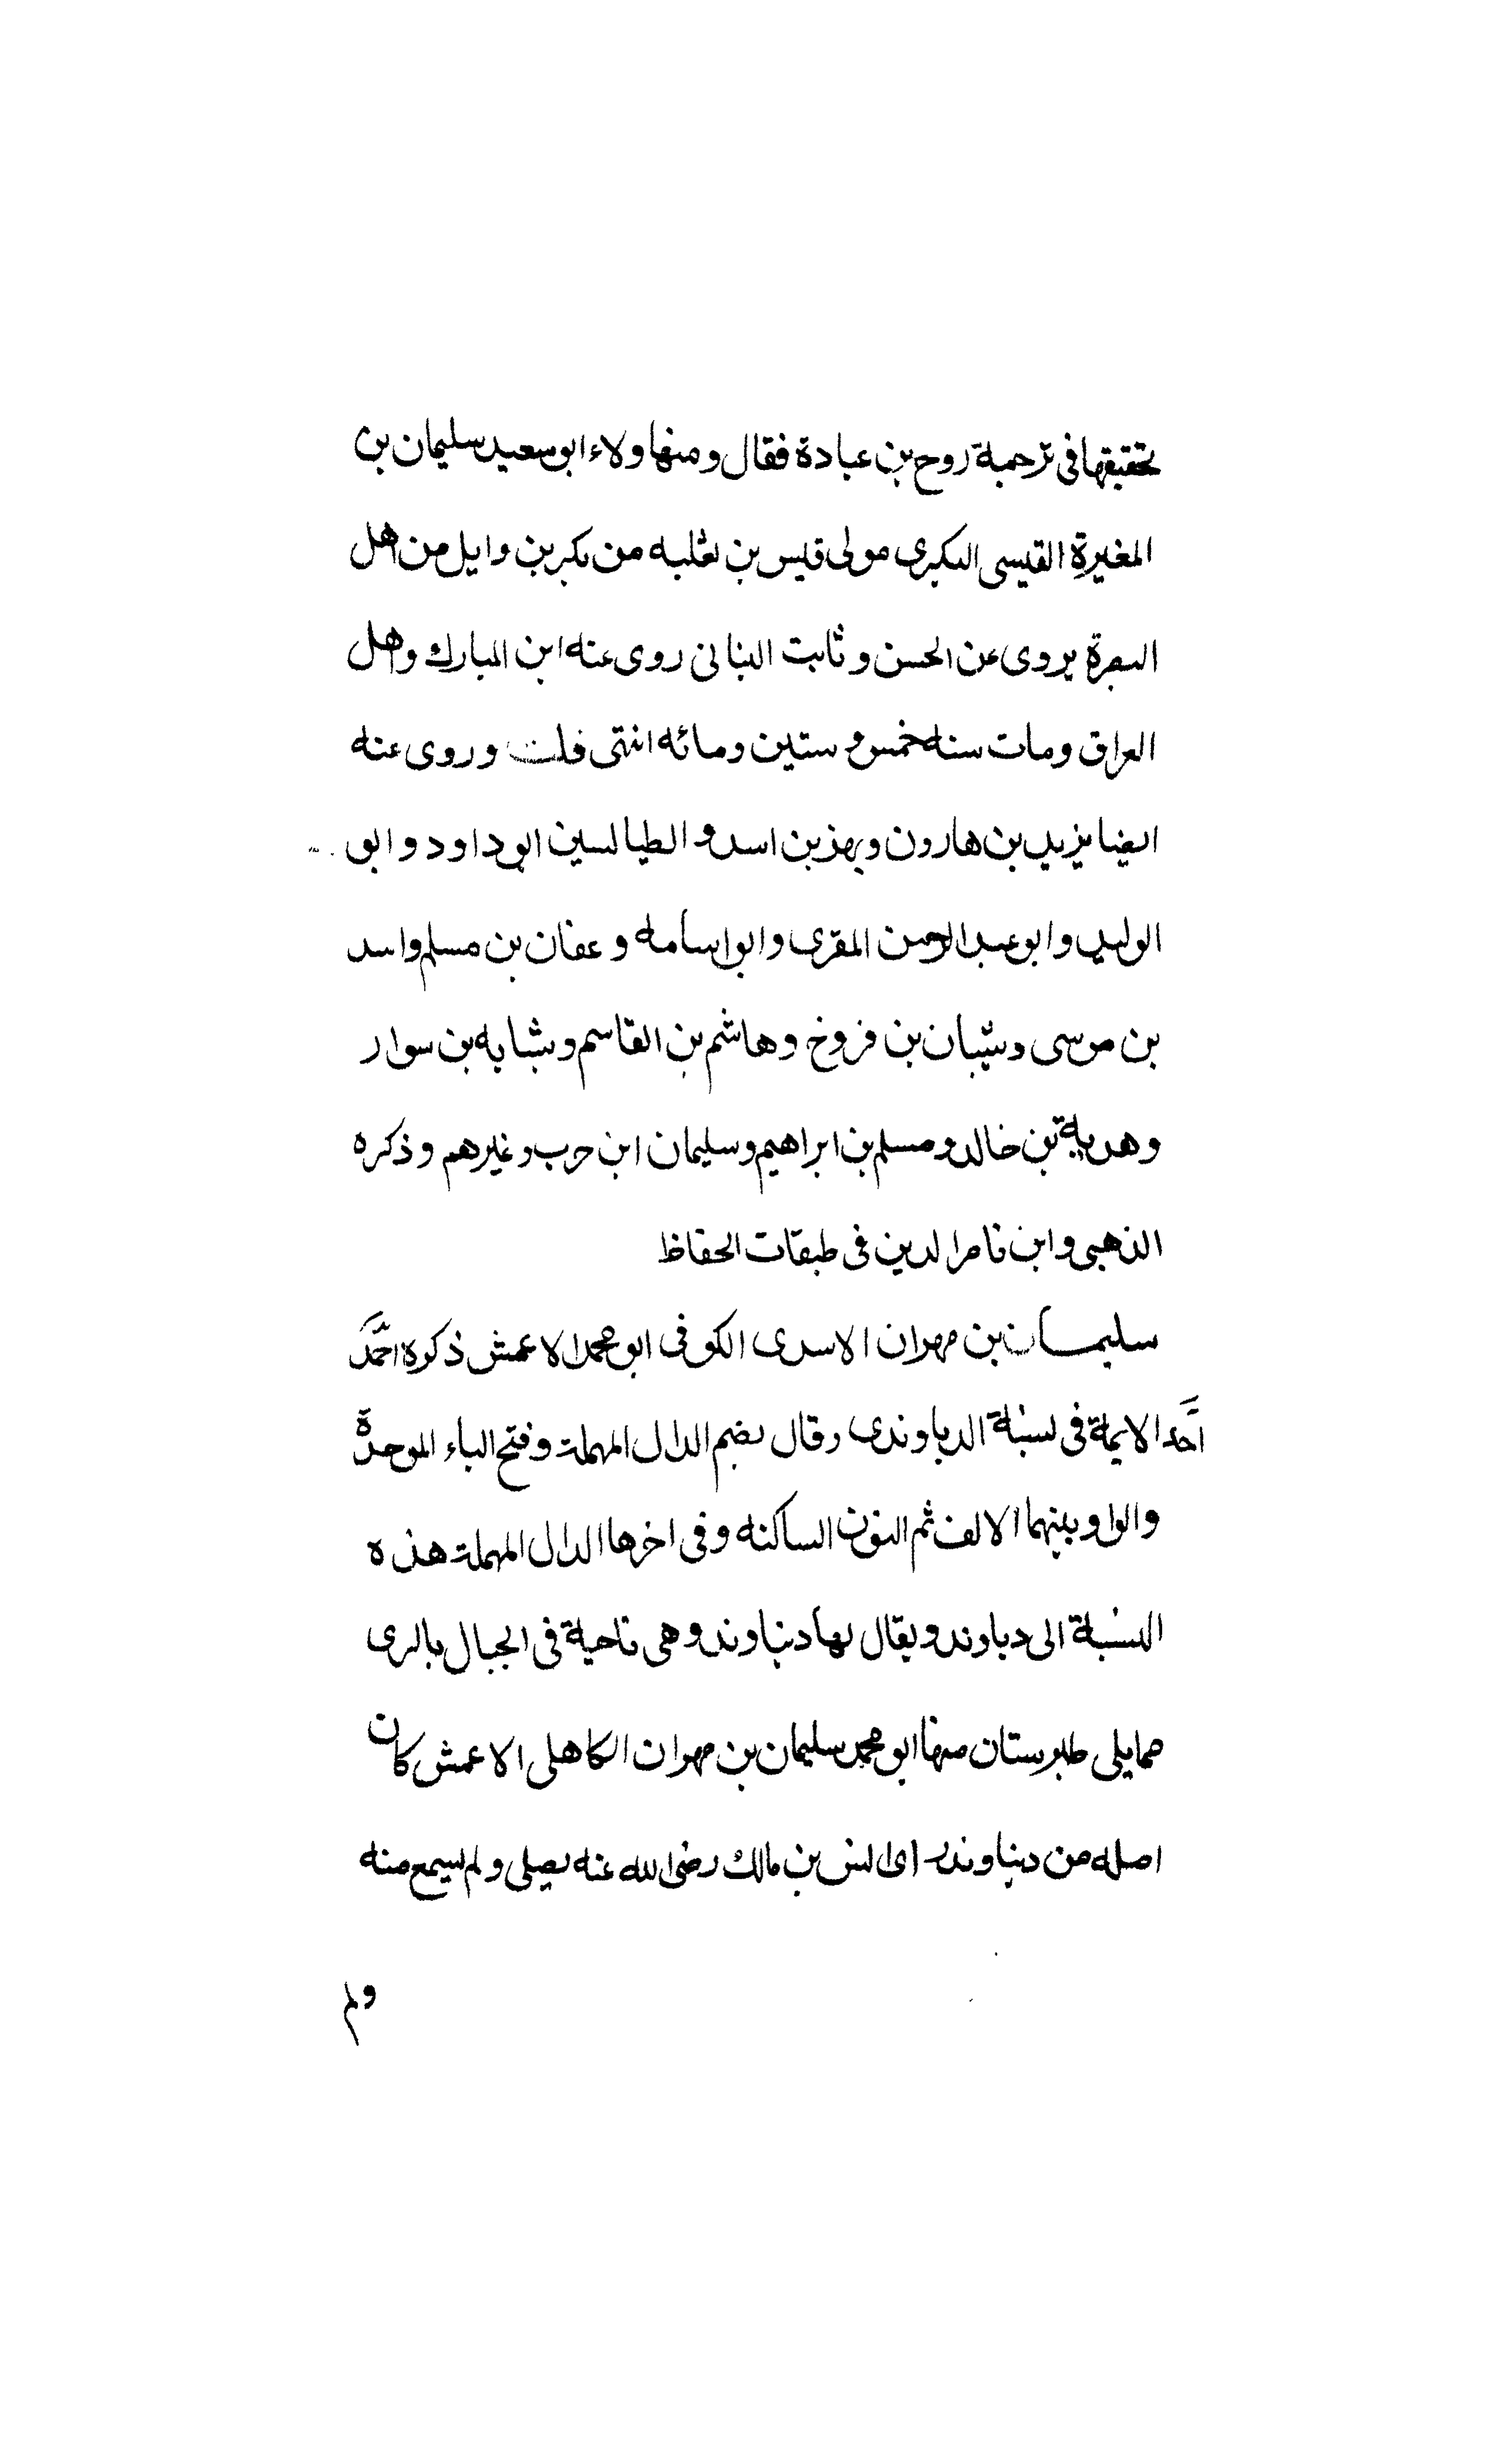 تحقيقها فى ترجمة روح بن عبادة فقال ومنها ولاء ابو سعيد سليمان بن
المغيرة القيسى البكرى مولى قيس بن ثعلبه من بكر بن وايل من اهل
البصرة يروى عن الحسن وثابت البنانى روى عنه ابن المبارك واهل
العراق ومات سنه خمس و ستين ومائه انتهى قلت وروى عنه
ايضا يزيد بن هارون وبهز بن اسد و الطيالسين ابو داود و ابو
الوليد وابو عبد الرحمن المقرى وابو اسامه و عفان بن مسلم واسد
بن موسى وشيبان بن فروخ وهاشم بن القاسم وشبابه بن سوار
وهدبة بن خالد ومسلم بن ابراهيم وسليمان ابن حرب وغيرهم وذكره
الذهبى وابن ناصر الدين فى طبقات الحفاظ
سليمان بن مهران الاسدى الكوفى ابو محمد الاعمش ذكره احمد
احد الايمة فى نسبة الدباوندى وقال بضم الدال المهملة وفتح الباء الموحدة
والواو بينهما الالف ثم النون الساكنه وفى اخرها الدال المهملة هذه
النسبة الى دباوند ويقال لها دنباوند وهى ناحية فى الجبال بالرى
مما يلى طبرستان منها ابو محمد سليمان بن مهران الكاهلى الاعمش كان
اصله من دنباوند راى انس بن مالك رضى الله عنه يصلى ولم يسمع منه
ولم